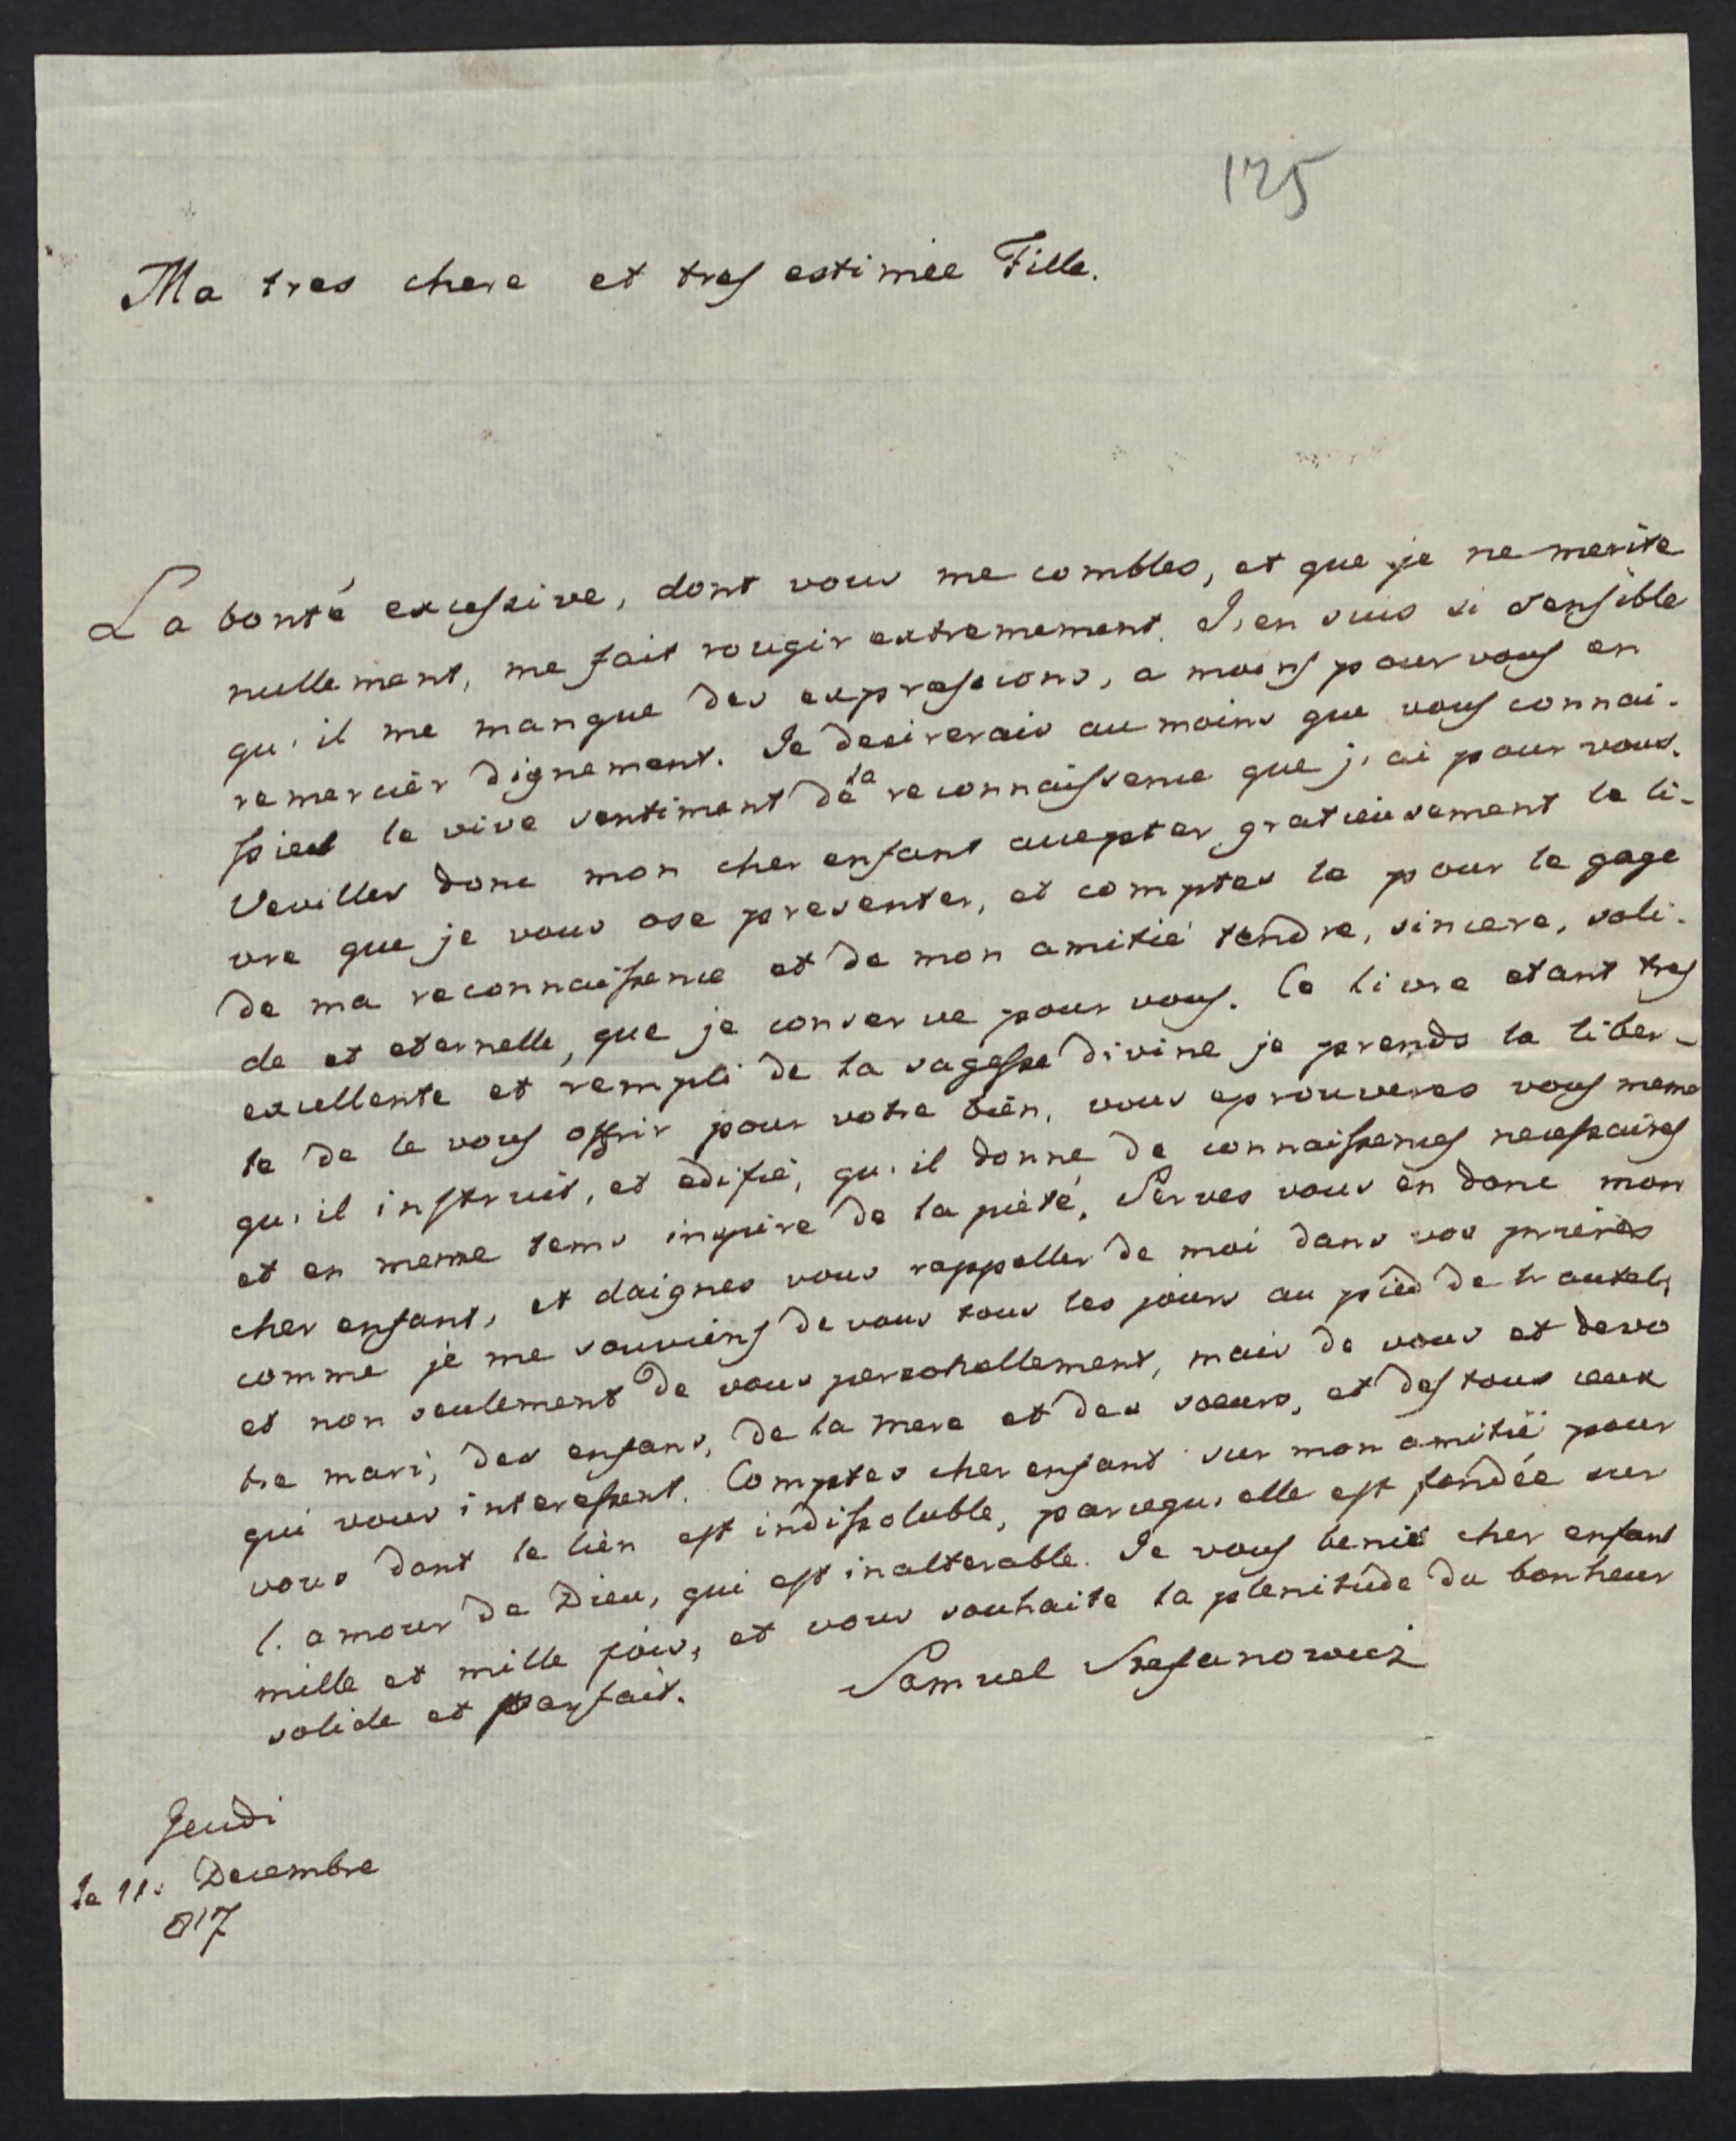 125
Ma tres chere et tres estimée Fille.
La bonté excessive, dont vous me combles, et que je ne merite
nullement, me fait rougir extremement. J'en suis si sensible
qu'il me manque des expressions, a moins pour vous en
remerciér dignement. Je desirerais au moins que vous connai-
ssies le vive sentiment de la reconnaissence que j'ai pour vous.
Veuilles donc mon cher enfant accepter gratieusement le li-
vre que je vous ose presenter, et comptes le pour le gage
de ma reconnaissence et de mon amitié tendre, sincere, soli-
de et eternelle, que je conserve pour vous. Ce livre etant tres
excellente et rempli de la sagesse divine je prends la liber-
te de le vous offrir pour votre bien, vous eprouveres vous meme
qu'il instruit, et edifié, qu'il donne de connaissences necessaires
et en meme tems inspire de la pieté, Serves vous en donc mon
cher enfant, et daignes vous rappeller de moi dans vos prieres
comme je me souviens de vous tous les jours au pied de l'autel,
et non seulement de vous personellement, mais de vous et de vo
tre mari, des enfans, de la mere et des soeurs, et des tous ceux
qui vous interessent. Comptes cher enfant sur mon amitié pour
vous dont le lien est indissoluble, parcequ'elle est fondée sur
l'amour de Dieu, qui est inalterable. Je vous benie cher enfant
mille et mille fois, et vous souhaite la plenitude du bonheur
solide et parfait.
Samuel Stefanowicz
Jeudi
le 11. Decembre
817